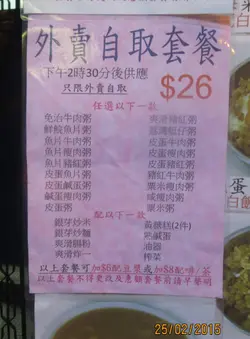 外賣自取套餐
下午2時30分後供應
只限外賣自取
$26
任選以下一款
免治牛肉粥
鮮鯇魚片粥
魚片牛肉粥
魚片瘦肉粥
皮蛋魚片粥
皮蛋鹹蛋粥
鹹蛋瘦肉粥
皮蛋粥
爽滑豬紅粥
艇仔粥
皮蛋牛肉粥
皮蛋瘦肉粥
豬紅牛肉粥
粟米瘦肉粥
瘦肉粥
粟米粥
配以下一款
銀芽炒米
銀芽炒麵
爽滑腸粉
爽滑炸
糕(2件)
熟鹹蛋
油器
榨菜
以上套餐可加$6配豆漿或加$8配啡/茶
以上套餐不得更改及惠顧套餐前請早聲明
蛋
白
25/02/2015